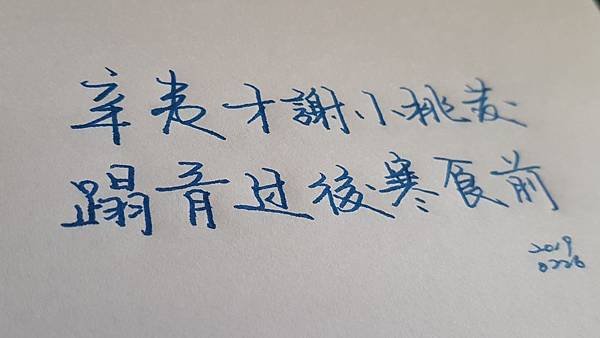 辛夷才謝小桃發
蹋青过後寒食前
2019
0226